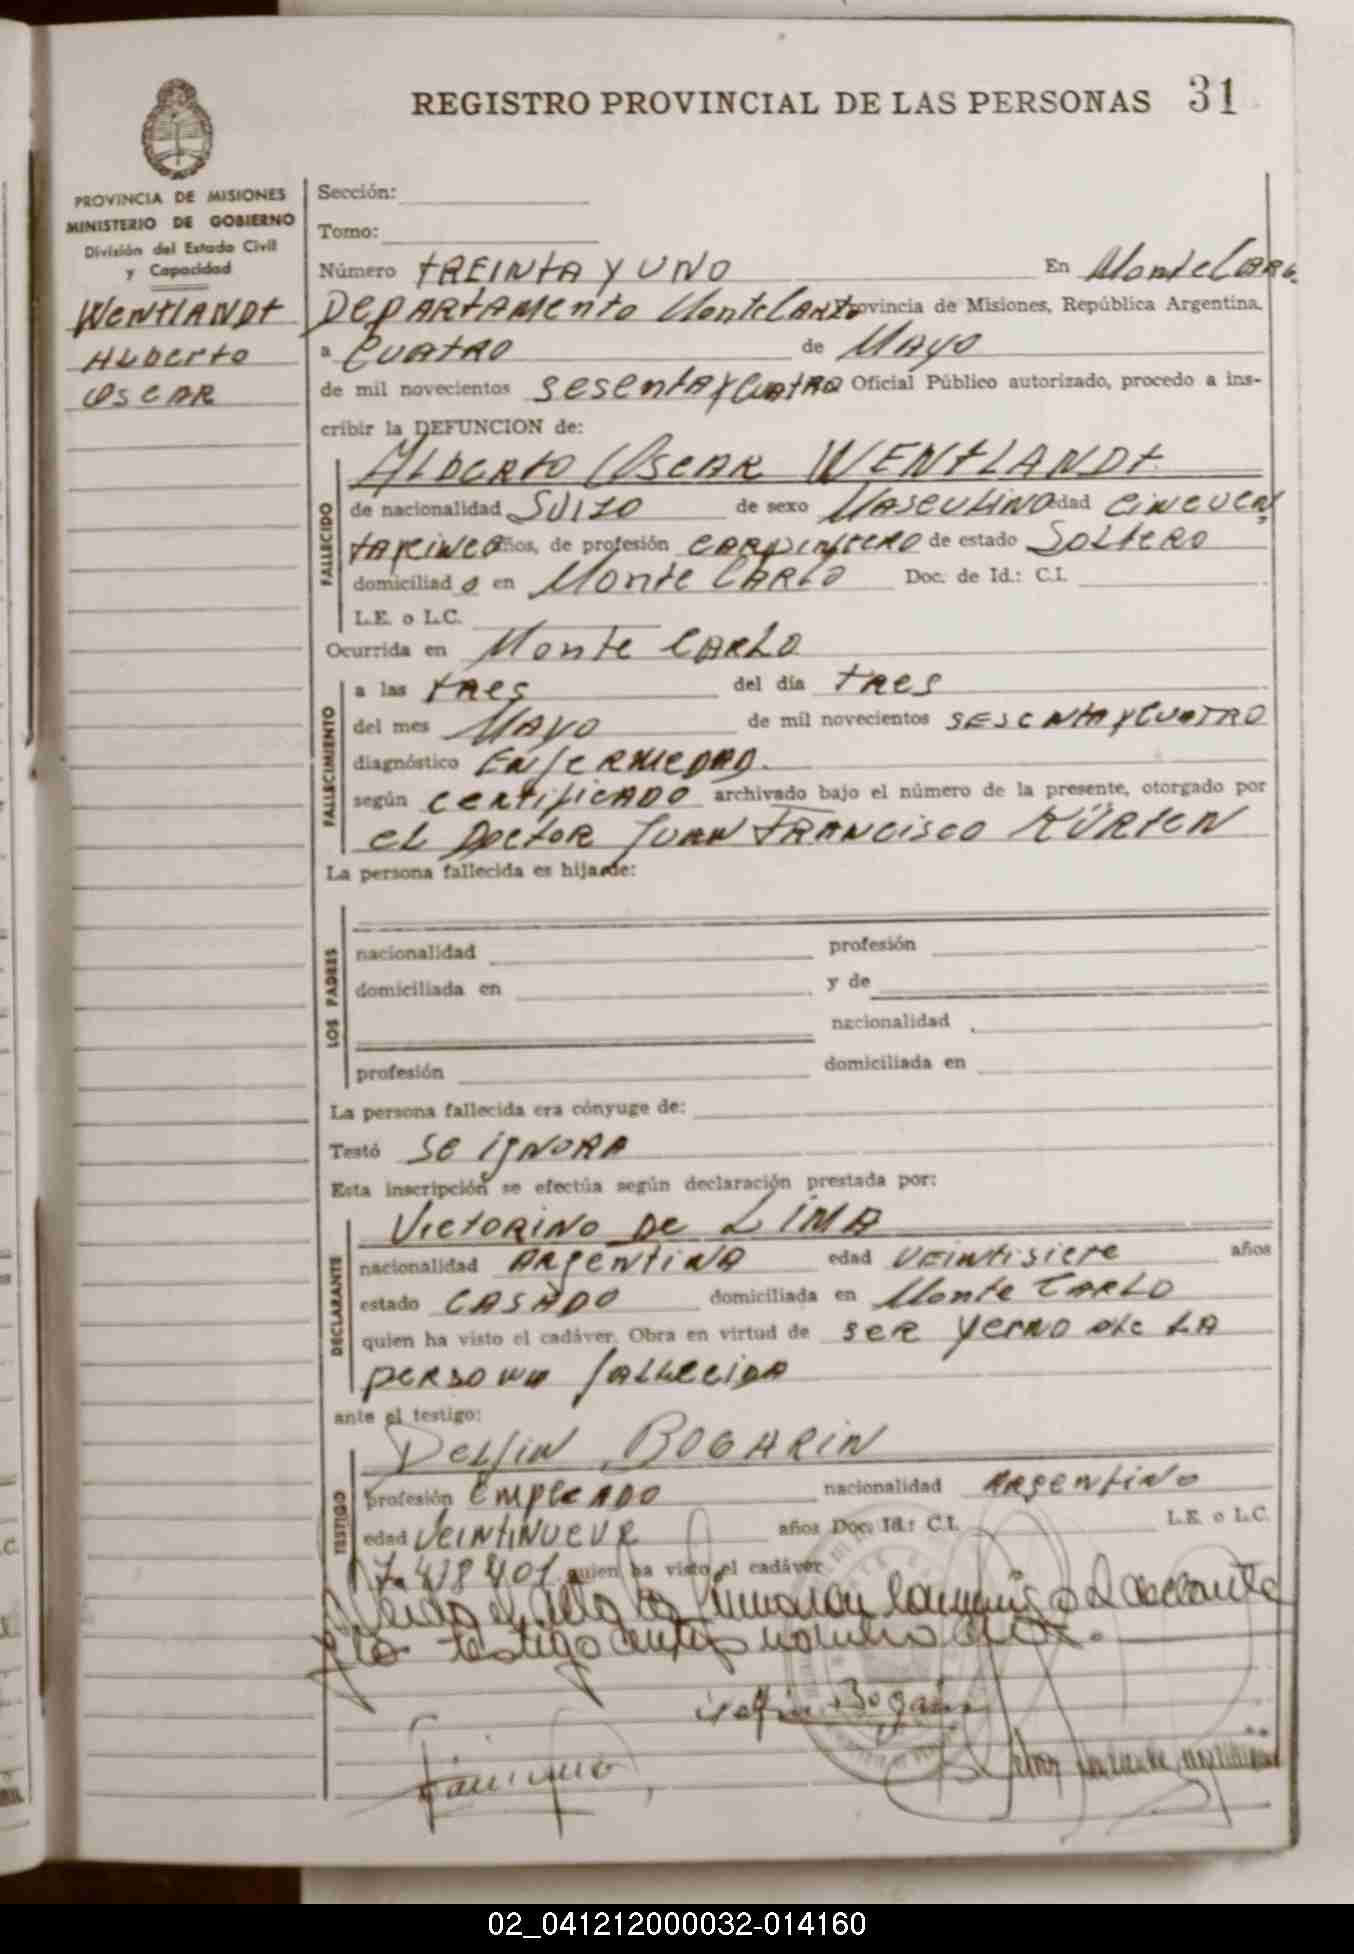 REGISTRO PROVINCIAL DE LAS PERSONAS 31
PROVINCIA DE MISIONES
MINISTERIO DE GOBIERNO
División del Estado Civil
y Capacidad
WENTLANDT
Alberto
Oscar
Sección:
Tomo:
Número treinta y uno En Monte Carlo
Departamento Monte Carlo Provincia de Misiones, República Argentina,
a Cuatro de Mayo
de mil novecientos sesenta y cuatro Oficial Público autorizado, procedo a ins-
cribir la DEFUNCION de:
FALLECIDO
Alberto Oscar WENTLANDT
de nacionalidad Suizo de sexo Masculino edad cincuen
ta y cinco años, de profesión carpintero de estado Soltero
domiciliado en Monte Carlo Doc. de Id.: C.I.
L.E. o L.C.
Ocurrida en Monte Carlo
FALLECIMIENTO
a las tres del día tres
del mes Mayo de mil novecientos sesenta y cuatro
diagnóstico Enfermedad.
según certificado archivado bajo el número de la presente, otorgado por
el Doctor Juan Francisco KÜRTEN
La persona fallecida es hija de:
LOS PADRES
nacionalidad profesión
domiciliada en y de
nacionalidad
profesión domiciliada en
La persona fallecida era cónyuge de:
Testó se ignora
Esta inscripción se efectúa según declaración prestada por:
DECLARANTE
Victorino de LIMA
nacionalidad Argentina edad veintisiete años
estado casado domiciliada en Monte Carlo
quien ha visto el cadáver. Obra en virtud de ser yerno de la
persona fallecida
ante el testigo:
TESTIGO
Delfin BOGARIN
profesión Empleado nacionalidad Argentino
edad veintinueve años Doc. Id.: C.I. L.E. o L.C.
7.418401 quien ha visto el cadáver
Leida el acta la firmaron conmigo el declarante
y la testigo
Delfin Bogarin
02_041212000032-014160